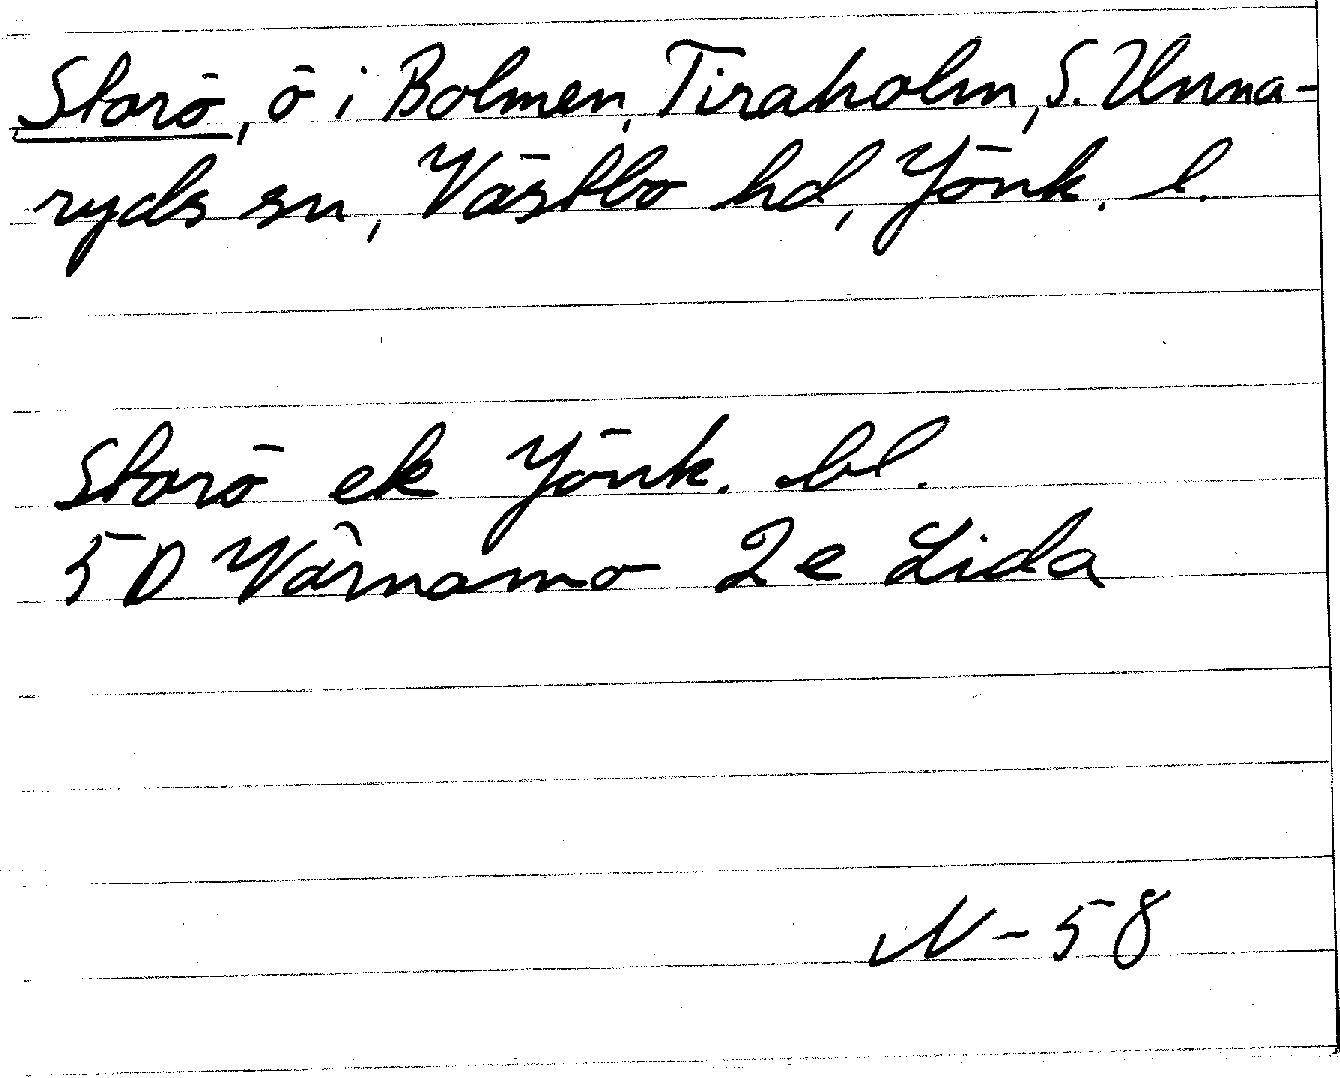 Storö, ö i Bolmen, Tiraholm, S. Unna-
ryds sn, Västbo hd, Jönk. l.
Storö ek Jönk. bl.
5D Värnamo 2e Lida
N-58